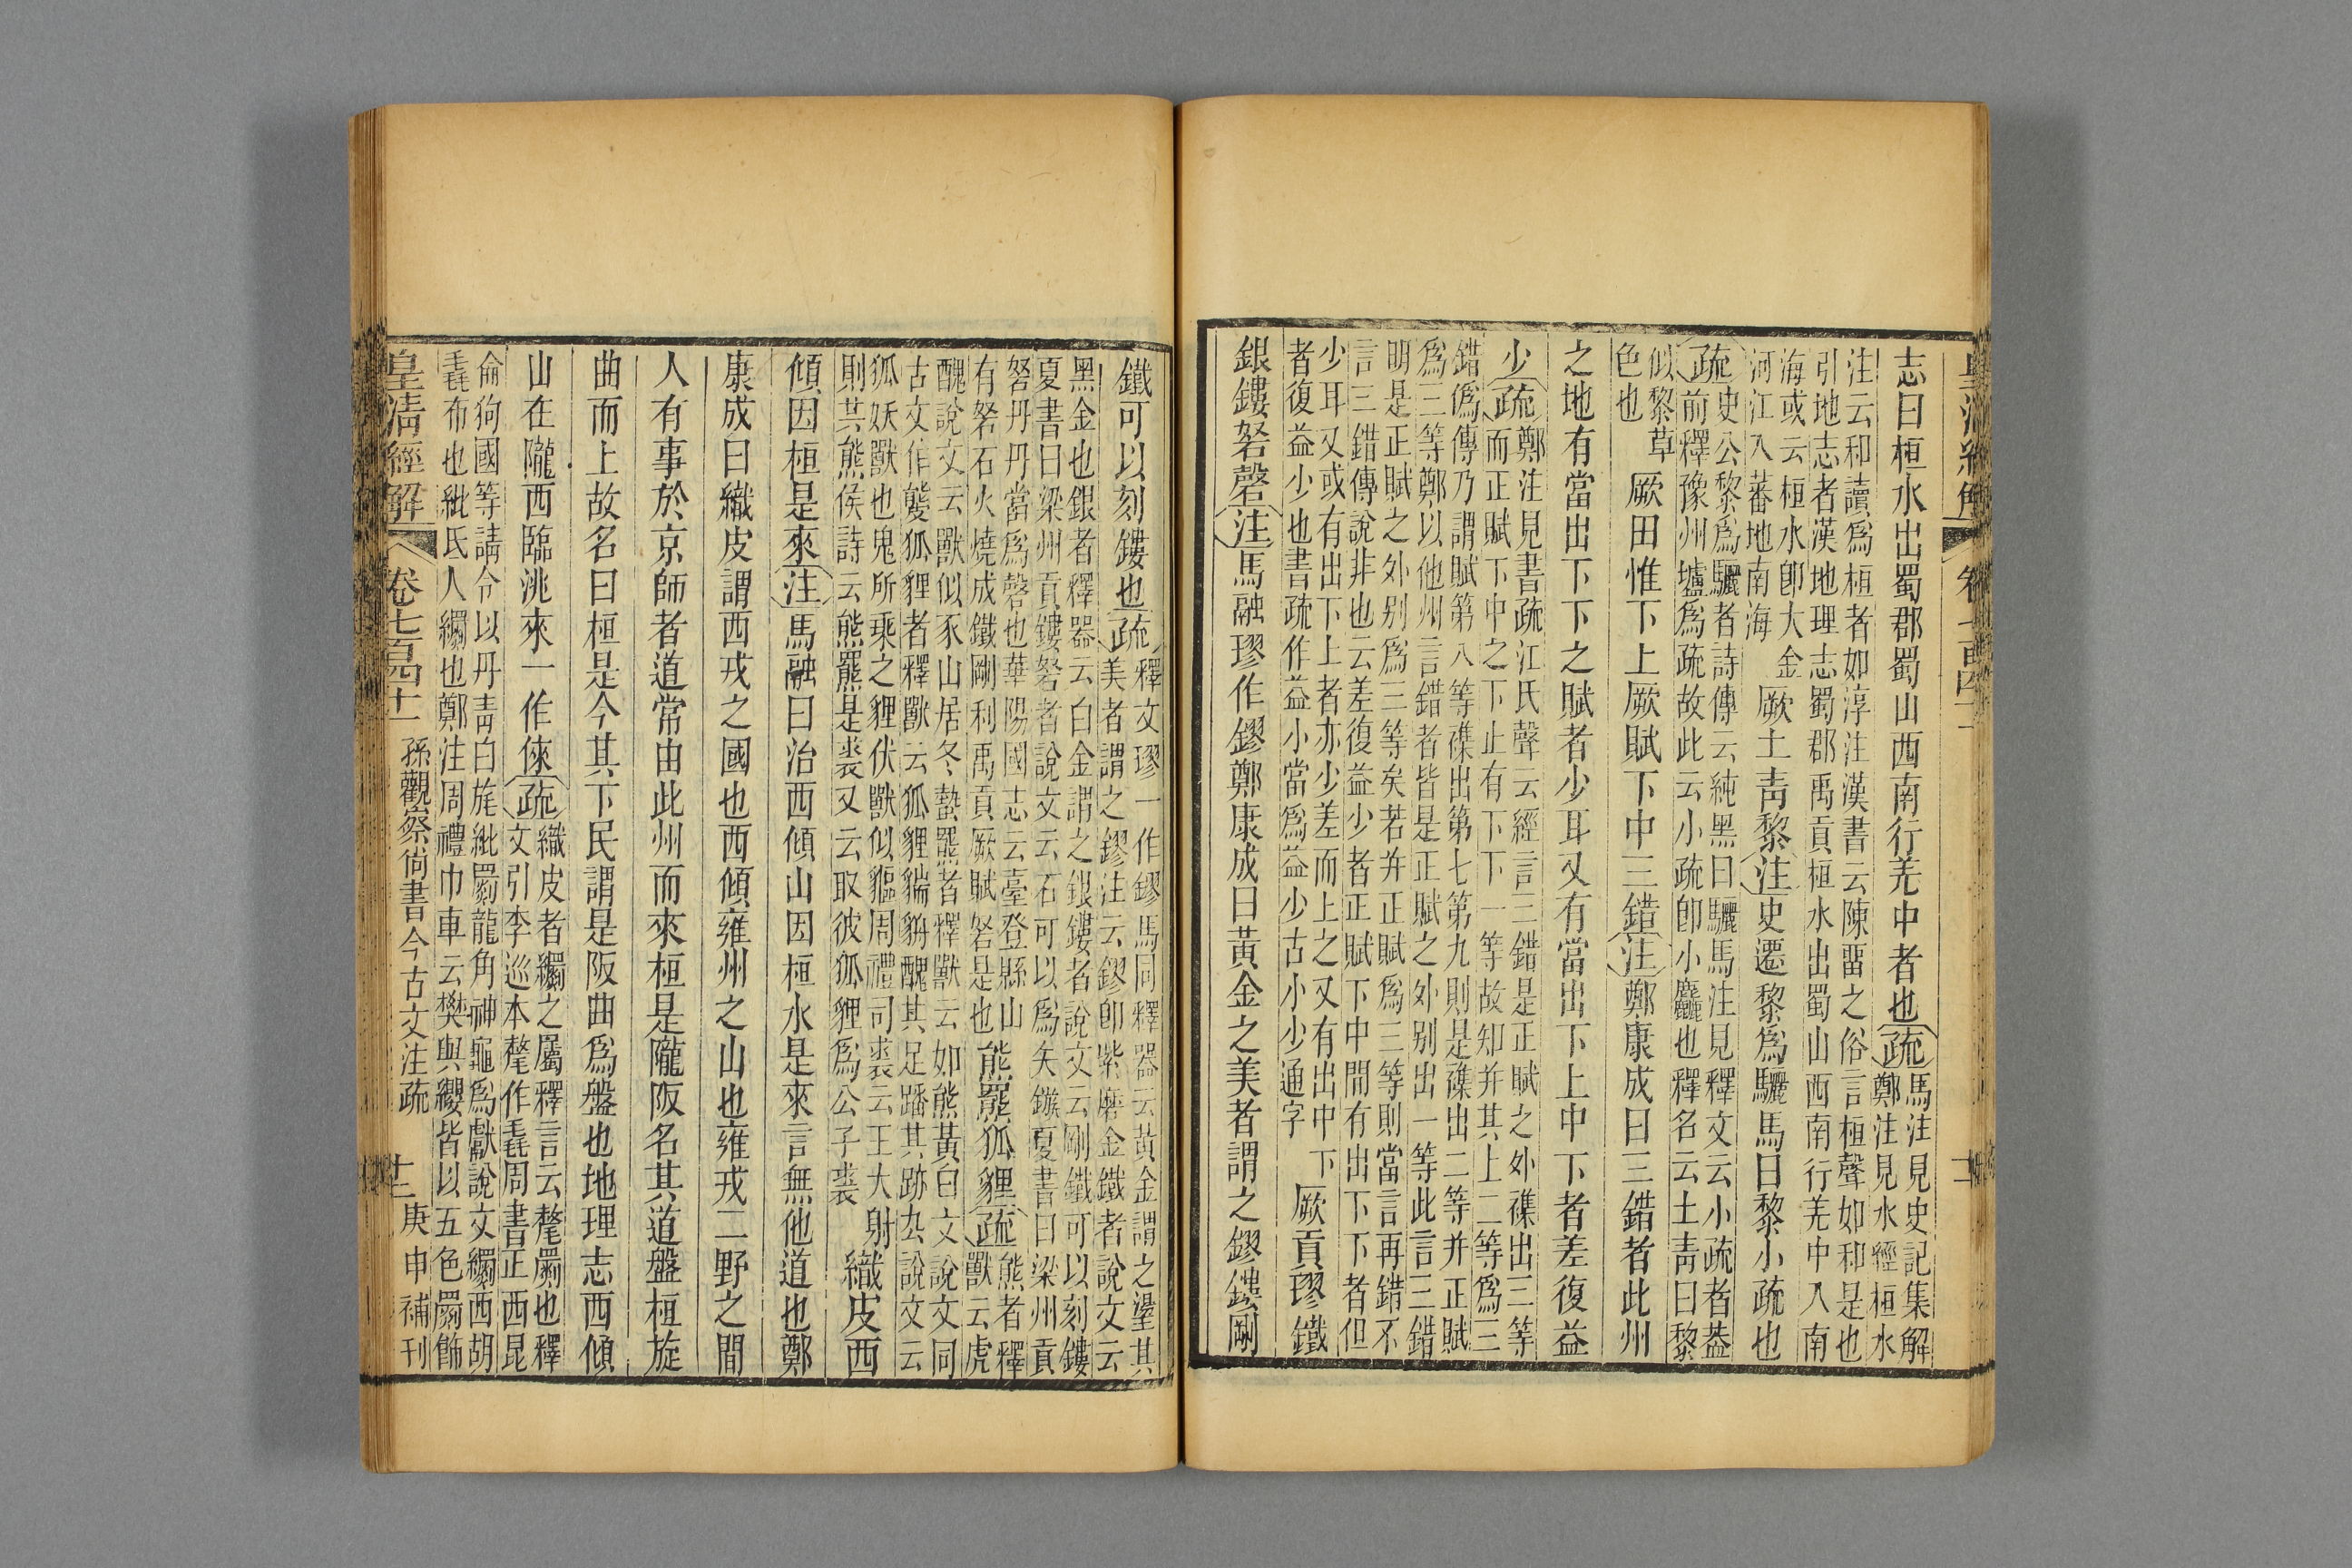 志曰桓水出蜀郡蜀山西南行羌中者也疏馬注見史記集解
鄭注見水經桓水
注云和讀爲桓者如淳注漢書云陳畱之俗言桓聲如和是也
引地志者漢地理志蜀郡禹貢桓水出蜀山西南行羌中入南
海或云桓水卽大金
河江入蕃地南海
厥土靑黎注史遷黎爲驪馬曰黎小疏也
疏史公黎爲驪者詩傳云純黑曰驪馬注見釋文云小疏者葢
前釋豫州壚爲疏故此云小疏卽小麤也釋名云土靑曰黎
似黎草
色也
厥田惟下上厥賦下中三錯注鄭康成曰三錯者此州
之地有當出下下之賦者少耳又有當出下上中下者差復益
少疏鄭注見書疏江氏聲云經言三錯是正賦之外襍出三等
而正賦下中之下止有下下一等故知并其上二等爲三
錯僞傳乃謂賦第八等襍出第七第九則是襍出二等并正賦
爲三等鄭以他州言錯者皆是正賦之外別出一等此言三錯
明是正賦之外別爲三等矣若并正賦爲三等則當言再錯不
言三錯傳說非也云差復益少者正賦下中閒有出下下者但
少耳又或有出下上者亦少差而上之又有出中下
者復益少也書疏作益小當爲益少古小少通字
厥貢璆鐵
銀鏤砮磬注馬融璆作鏐鄭康成曰黃金之美者謂之鏐鏤剛
鐵可以刻鏤也疏釋文璆一作鏐馬同釋器云黃金謂之璗其
美者謂之鏐注云鏐卽紫磨金鐵者說文云
黑金也銀者釋器云白金謂之銀鏤者說文云剛鐵可以刻鏤
夏書曰梁州貢鏤砮者說文云石可以爲矢鏃夏書曰梁州貢
砮丹丹當爲磬也華陽國志云臺登縣山
有砮石火燒成鐵剛利禹貢厥賦砮是也
熊羆狐貍疏熊者釋
獸云虎
醜說文云獸似豕山居冬蟄羆者釋獸云如熊黃白文說文同
古文作𤡱狐貍者釋獸云狐貍貒貈醜其足蹯其跡厹說文云
狐妖獸也鬼所乘之貍伏獸似貙周禮司裘云王大射
則共熊侯詩云熊羆是裘又云取彼狐貍爲公子裘
織皮西
傾因桓是來注馬融曰治西傾山因桓水是來言無他道也鄭
康成曰織皮謂西戎之國也西傾雍州之山也雍戎二野之閒
人有事於京師者道常由此州而來桓是隴阪名其道盤桓旋
曲而上故名曰桓是今其下民謂是阪曲爲盤也地理志西傾
山在隴西臨洮來一作倈疏織皮者𦋺之屬釋言云氂罽也釋
文引李巡本氂作毳周書正西昆
侖狗國等請令以丹靑白旄紕罽龍角神龜爲獻說文𦋺西胡
毳布也紕氏人𦋺也鄭注周禮巾車云樊與纓皆以五色罽飾
皇淸經解 卷七百四十一 孫觀察尙書今古文注疏 十二 庚申補刊